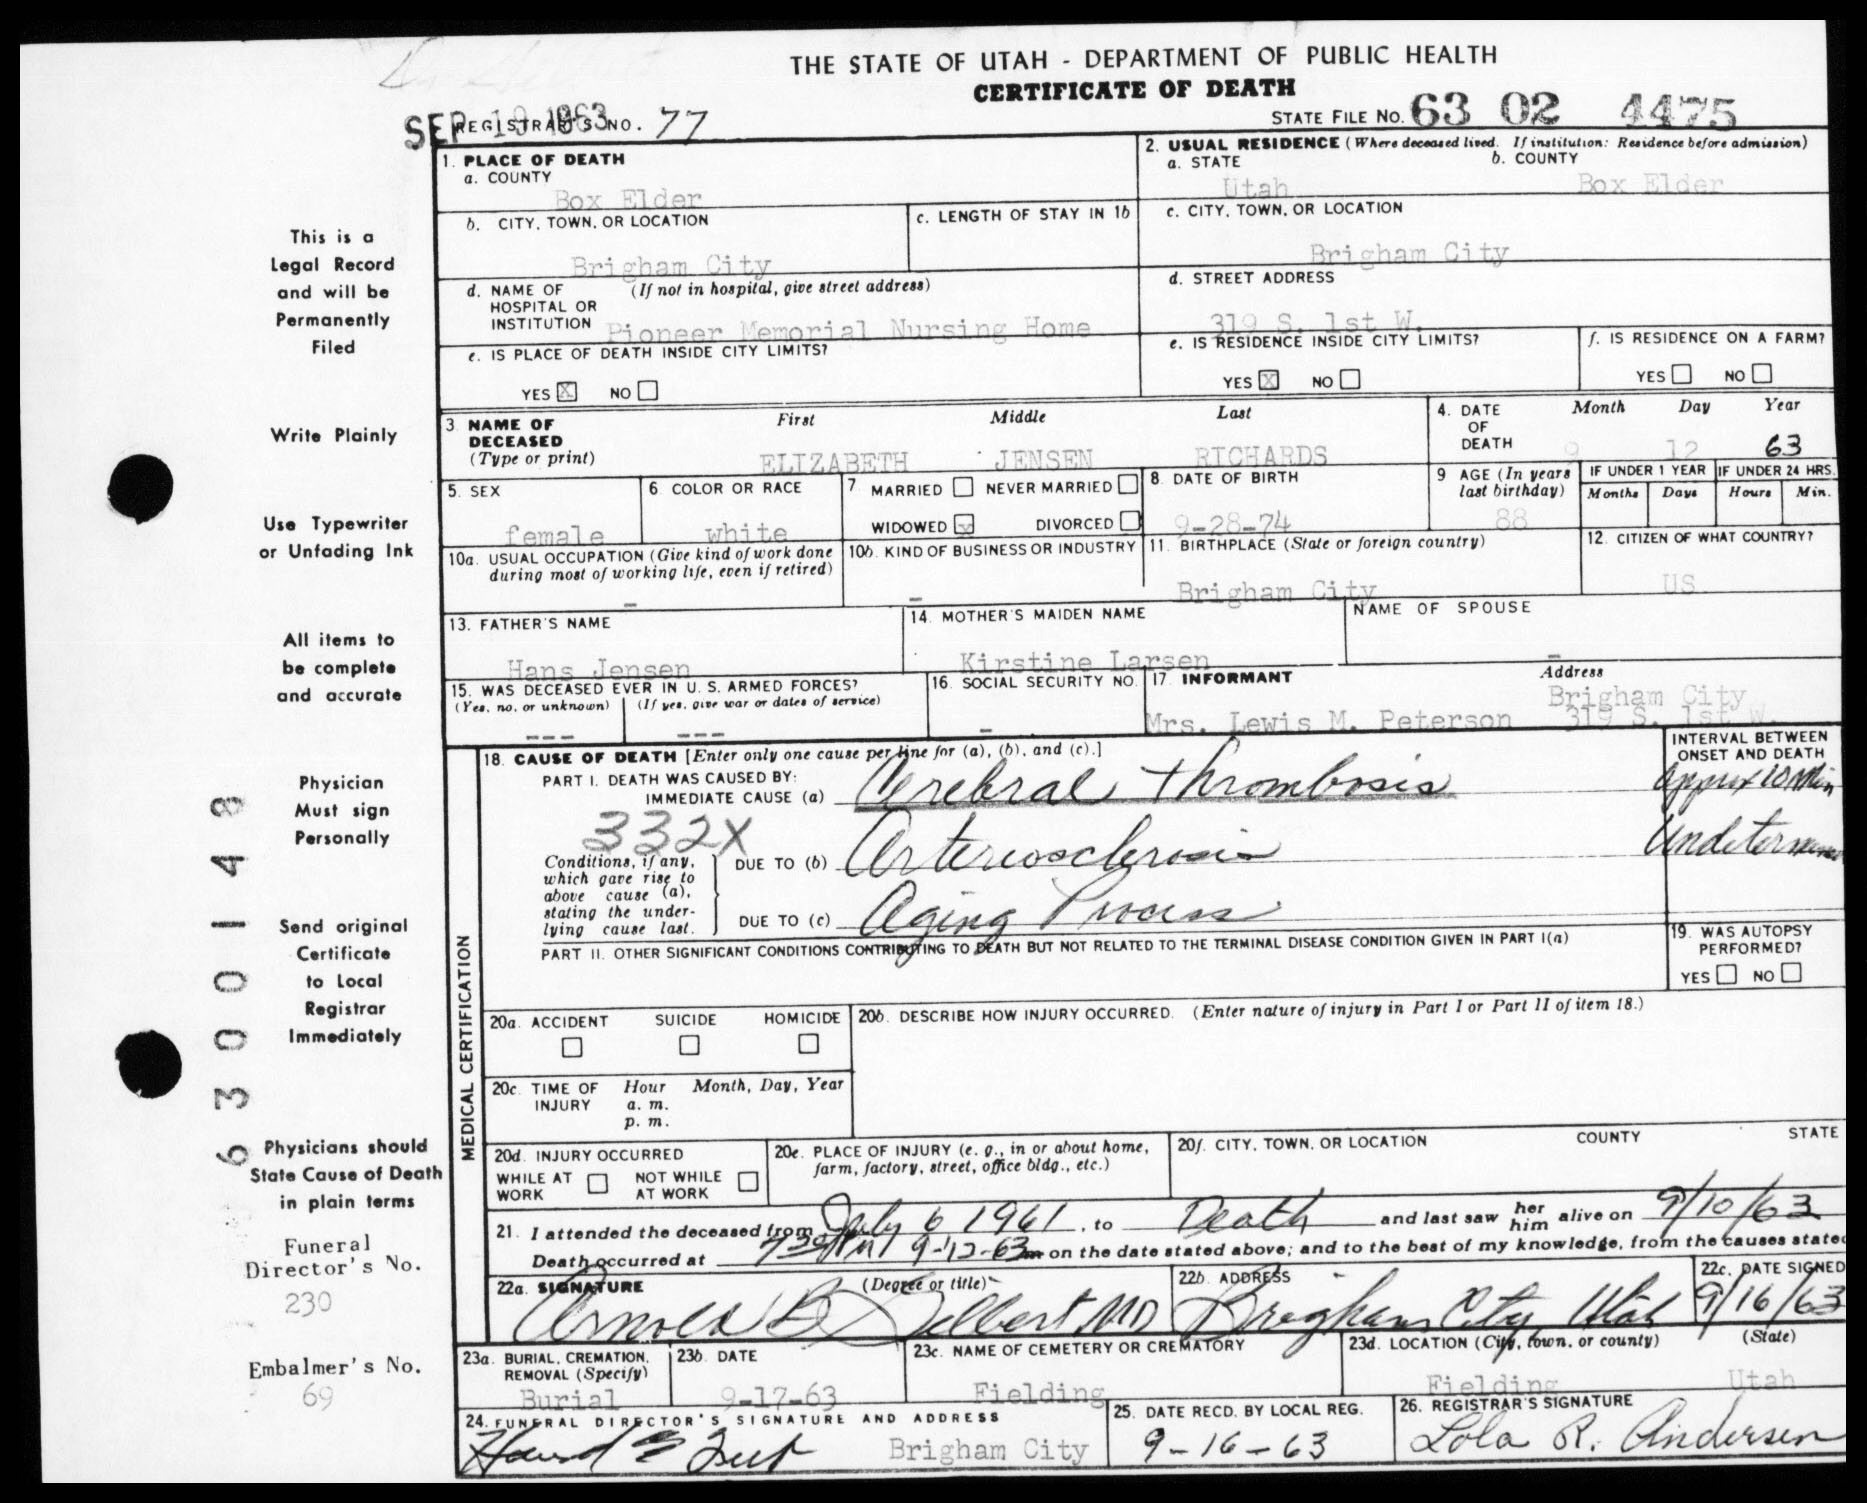 THE STATE OF UTAH - DEPARTMENT OF PUBLIC HEALTH
CERTIFICATE OF DEATH
SEP 19 1963
REGISTRAR'S NO. 77
STATE FILE NO. 63 02 4475
This is a
Legal Record
and will be
Permanently
Filed
Write Plainly
Use Typewriter
or Unfading Ink
All items to
be complete
and accurate
Physician
Must sign
Personally
Send original
Certificate
to Local
Registrar
Immediately
Physicians should
State Cause of Death
in plain terms
Funeral
Director's No.
230
Embalmer's No.
69
6300148
1. PLACE OF DEATH
a. COUNTY
Box Elder
2. USUAL RESIDENCE (Where deceased lived. If institution: Residence before admission)
a. STATE b. COUNTY
Utah Box Elder
b. CITY, TOWN, OR LOCATION
Brigham City
c. LENGTH OF STAY IN 1b
c. CITY, TOWN, OR LOCATION
Brigham City
d. NAME OF (If not in hospital, give street address)
HOSPITAL OR
INSTITUTION Pioneer Memorial Nursing Home
d. STREET ADDRESS
319 S. 1st W.
e. IS PLACE OF DEATH INSIDE CITY LIMITS?
YES X NO
e. IS RESIDENCE INSIDE CITY LIMITS?
YES X NO
f. IS RESIDENCE ON A FARM?
YES NO
3. NAME OF DECEASED (Type or print)
First Middle Last
ELIZABETH JENSEN RICHARDS
4. DATE OF DEATH
Month Day Year
9 12 63
5. SEX
female
6. COLOR OR RACE
white
7 MARRIED NEVER MARRIED
WIDOWED x DIVORCED
8. DATE OF BIRTH
9-28-74
9 AGE (In years last birthday)
88
IF UNDER 1 YEAR
Months Days
IF UNDER 24 HRS.
Hours Min.
10a. USUAL OCCUPATION (Give kind of work done
during most of working life, even if retired)
-
10b. KIND OF BUSINESS OR INDUSTRY
-
11. BIRTHPLACE (State or foreign country)
Brigham City
12. CITIZEN OF WHAT COUNTRY?
US
13. FATHER'S NAME
Hans Jensen
14. MOTHER'S MAIDEN NAME
Kirstine Larsen
NAME OF SPOUSE
-
15. WAS DECEASED EVER IN U. S. ARMED FORCES?
(Yes, no, or unknown) (If yes, give war or dates of service)
--- ---
16. SOCIAL SECURITY NO.
-
17. INFORMANT Address
Mrs. Lewis M. Peterson
Brigham City
319 S. 1st W.
MEDICAL CERTIFICATION
18. CAUSE OF DEATH [Enter only one cause per line for (a), (b), and (c).]
PART I. DEATH WAS CAUSED BY:
IMMEDIATE CAUSE (a) Cerebral Thrombosis
332X
Conditions, if any,
which gave rise to
above cause (a),
stating the under-
lying cause last.
DUE TO (b) Arteriosclerosis
DUE TO (c) Aging Process
INTERVAL BETWEEN
ONSET AND DEATH
Approx 10 Min
PART II. OTHER SIGNIFICANT CONDITIONS CONTRIBUTING TO DEATH BUT NOT RELATED TO THE TERMINAL DISEASE CONDITION GIVEN IN PART I(a)
19. WAS AUTOPSY
PERFORMED?
YES NO
20a. ACCIDENT SUICIDE HOMICIDE
20b. DESCRIBE HOW INJURY OCCURRED. (Enter nature of injury in Part I or Part II of item 18.)
20c. TIME OF INJURY
Hour Month, Day, Year
a. m.
p. m.
20d. INJURY OCCURRED
WHILE AT WORK NOT WHILE AT WORK
20e. PLACE OF INJURY (e. g., in or about home,
farm, factory, street, office bldg., etc.)
20f. CITY, TOWN, OR LOCATION COUNTY STATE
21. I attended the deceased from July 6 1961, to Death and last saw her him alive on 9/10/63
Death occurred at 7:30 PM 9-12-63 m on the date stated above; and to the best of my knowledge, from the causes stated
22a. SIGNATURE (Degree or title)
Arnold B. Gilbert, MD
22b. ADDRESS
Brigham City, Utah
22c. DATE SIGNED
9/16/63
23a. BURIAL, CREMATION,
REMOVAL (Specify)
Burial
23b. DATE
9-17-63
23c. NAME OF CEMETERY OR CREMATORY
Fielding
23d. LOCATION (City, town, or county) (State)
Fielding Utah
24. FUNERAL DIRECTOR'S SIGNATURE AND ADDRESS
Brigham City
25. DATE RECD. BY LOCAL REG.
9-16-63
26. REGISTRAR'S SIGNATURE
Lola R. Andersen